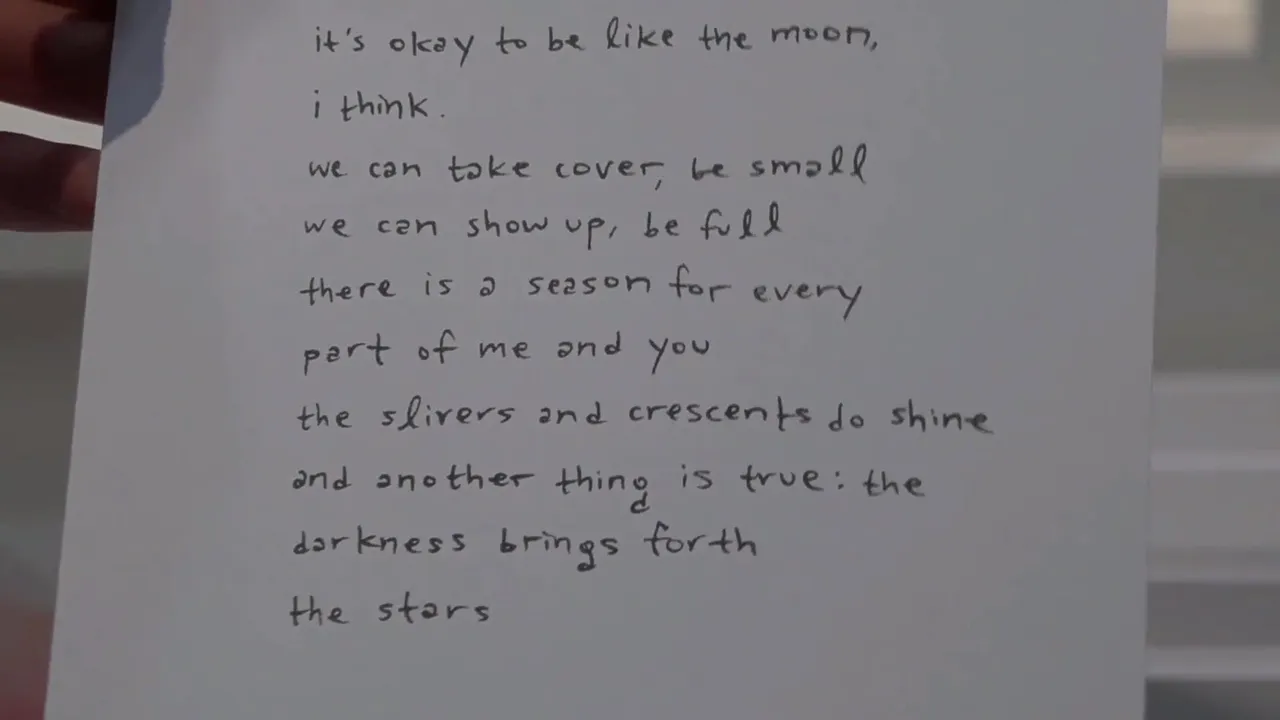 it's okay to be like the moon,
i think.
we can take cover, be small
we can show up, be full
there is a season for every
part of me and you
the slivers and crescents do shine
and another thing is true: the
darkness brings forth
the stars